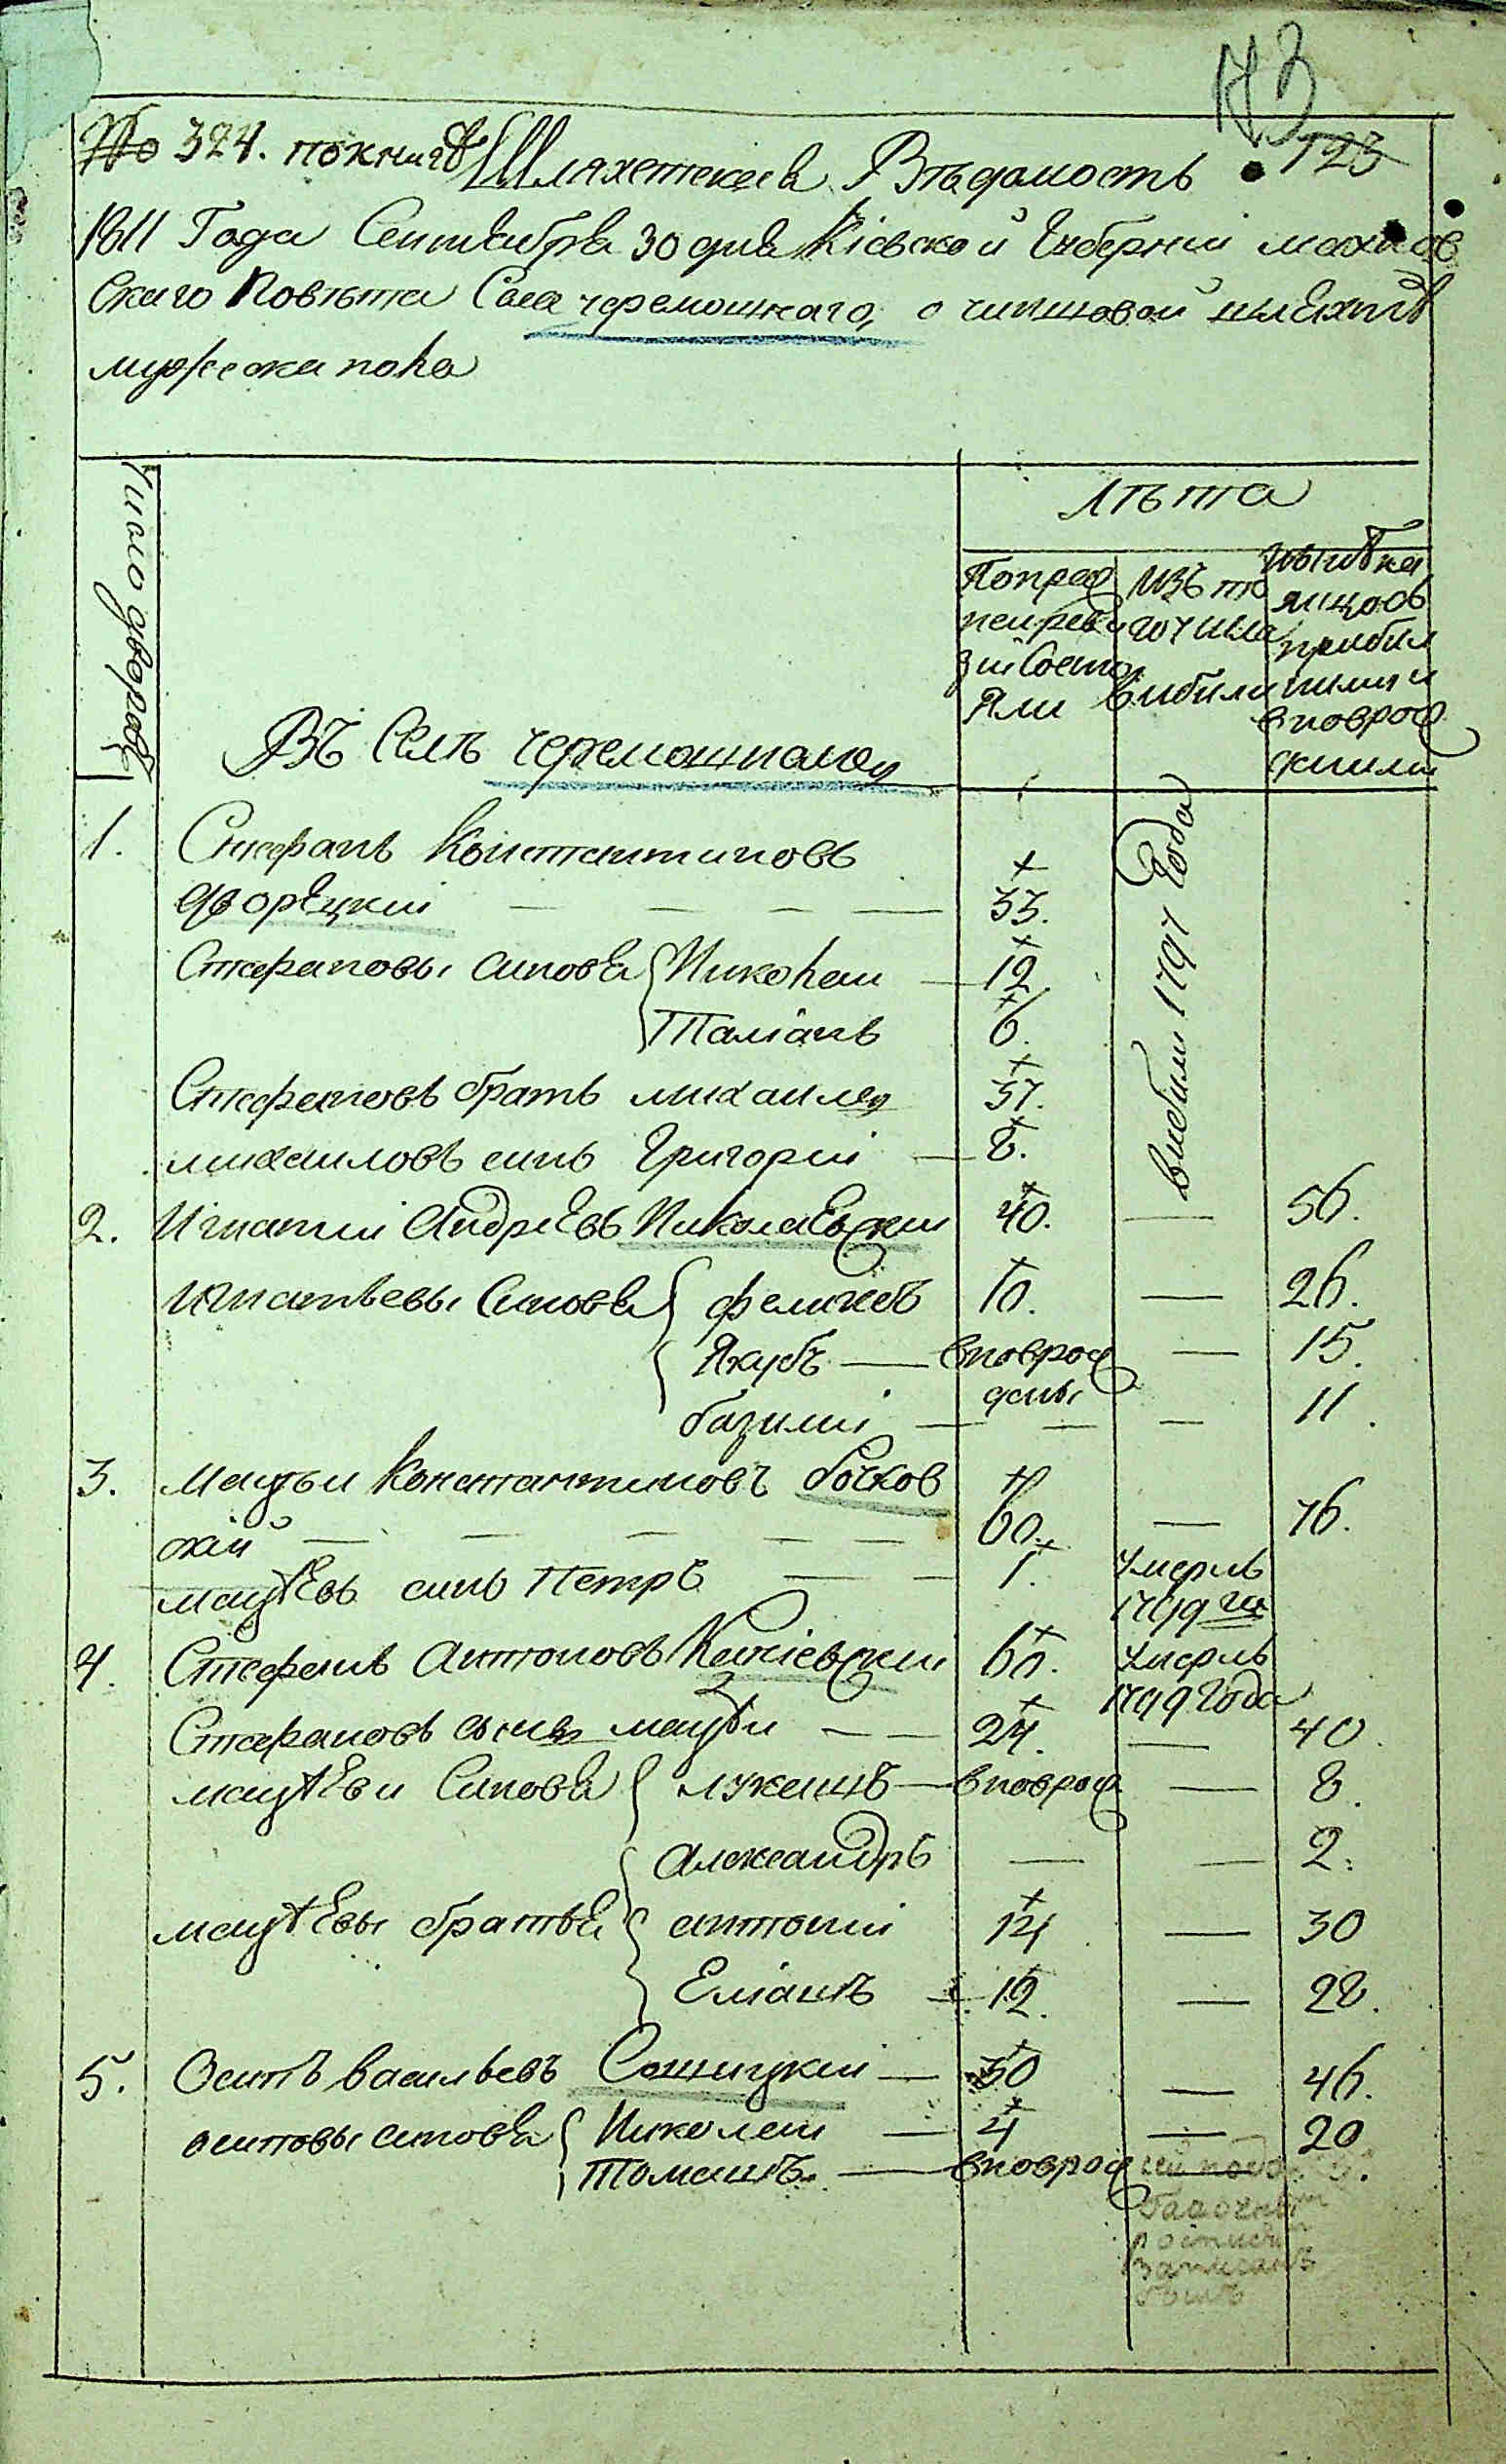 № 324. по книгѣ Шляхетская Вѣдомость 123
173
1811 Года Сентября 30 дня Кіевской Губерніи махнов
скаго Повѣта Села черемошнаго, о чиншовой шляхтѣ
мужеска пола
Число дворовъ
Лѣта
По пред
пей реви
зіи Состо
яли
Изъ то
го числа
вибили
нынѣ на
лицо съ
прибил
шими и
вновро&#1078;
Въ Селѣ черемошномъ
1. Стефанъ Константиновъ
дворецкій — — — — 33.
вибили 1797 Года
Стефановы синовя { Николай — 12
Таміанъ 6.
Стефановъ братъ михаилъ 37.
михаиловъ синъ Григорій — 8.
2. Игнатій Андреевъ Николаевскій 40. — 56.
Игнатьевы Синовя { феликсъ 10. — 26.
Якубъ — вноврож — 15.
дены
базилій — — — 11.
3. матьи Константиновъ бочков
скій — — — — — 60. — 76.
матѣевъ синъ Петръ — — 1. умеръ
1799 го
4. Стефанъ антоновъ 60. умеръ
1799 Года
Стефановъ синъ матѣи — — 24. — 40.
матѣеви Синовя { лукашъ — вноврож — 8.
Александръ — — 2.
матѣевы братья { антоній 14 — 30
Еліашъ — 12. — 28.
5. Осипъ васильевъ Сошицкій — 30 — 46.
осиповы синовя { Николай — 4 — 20
Томашъ — вноврож
записанъ